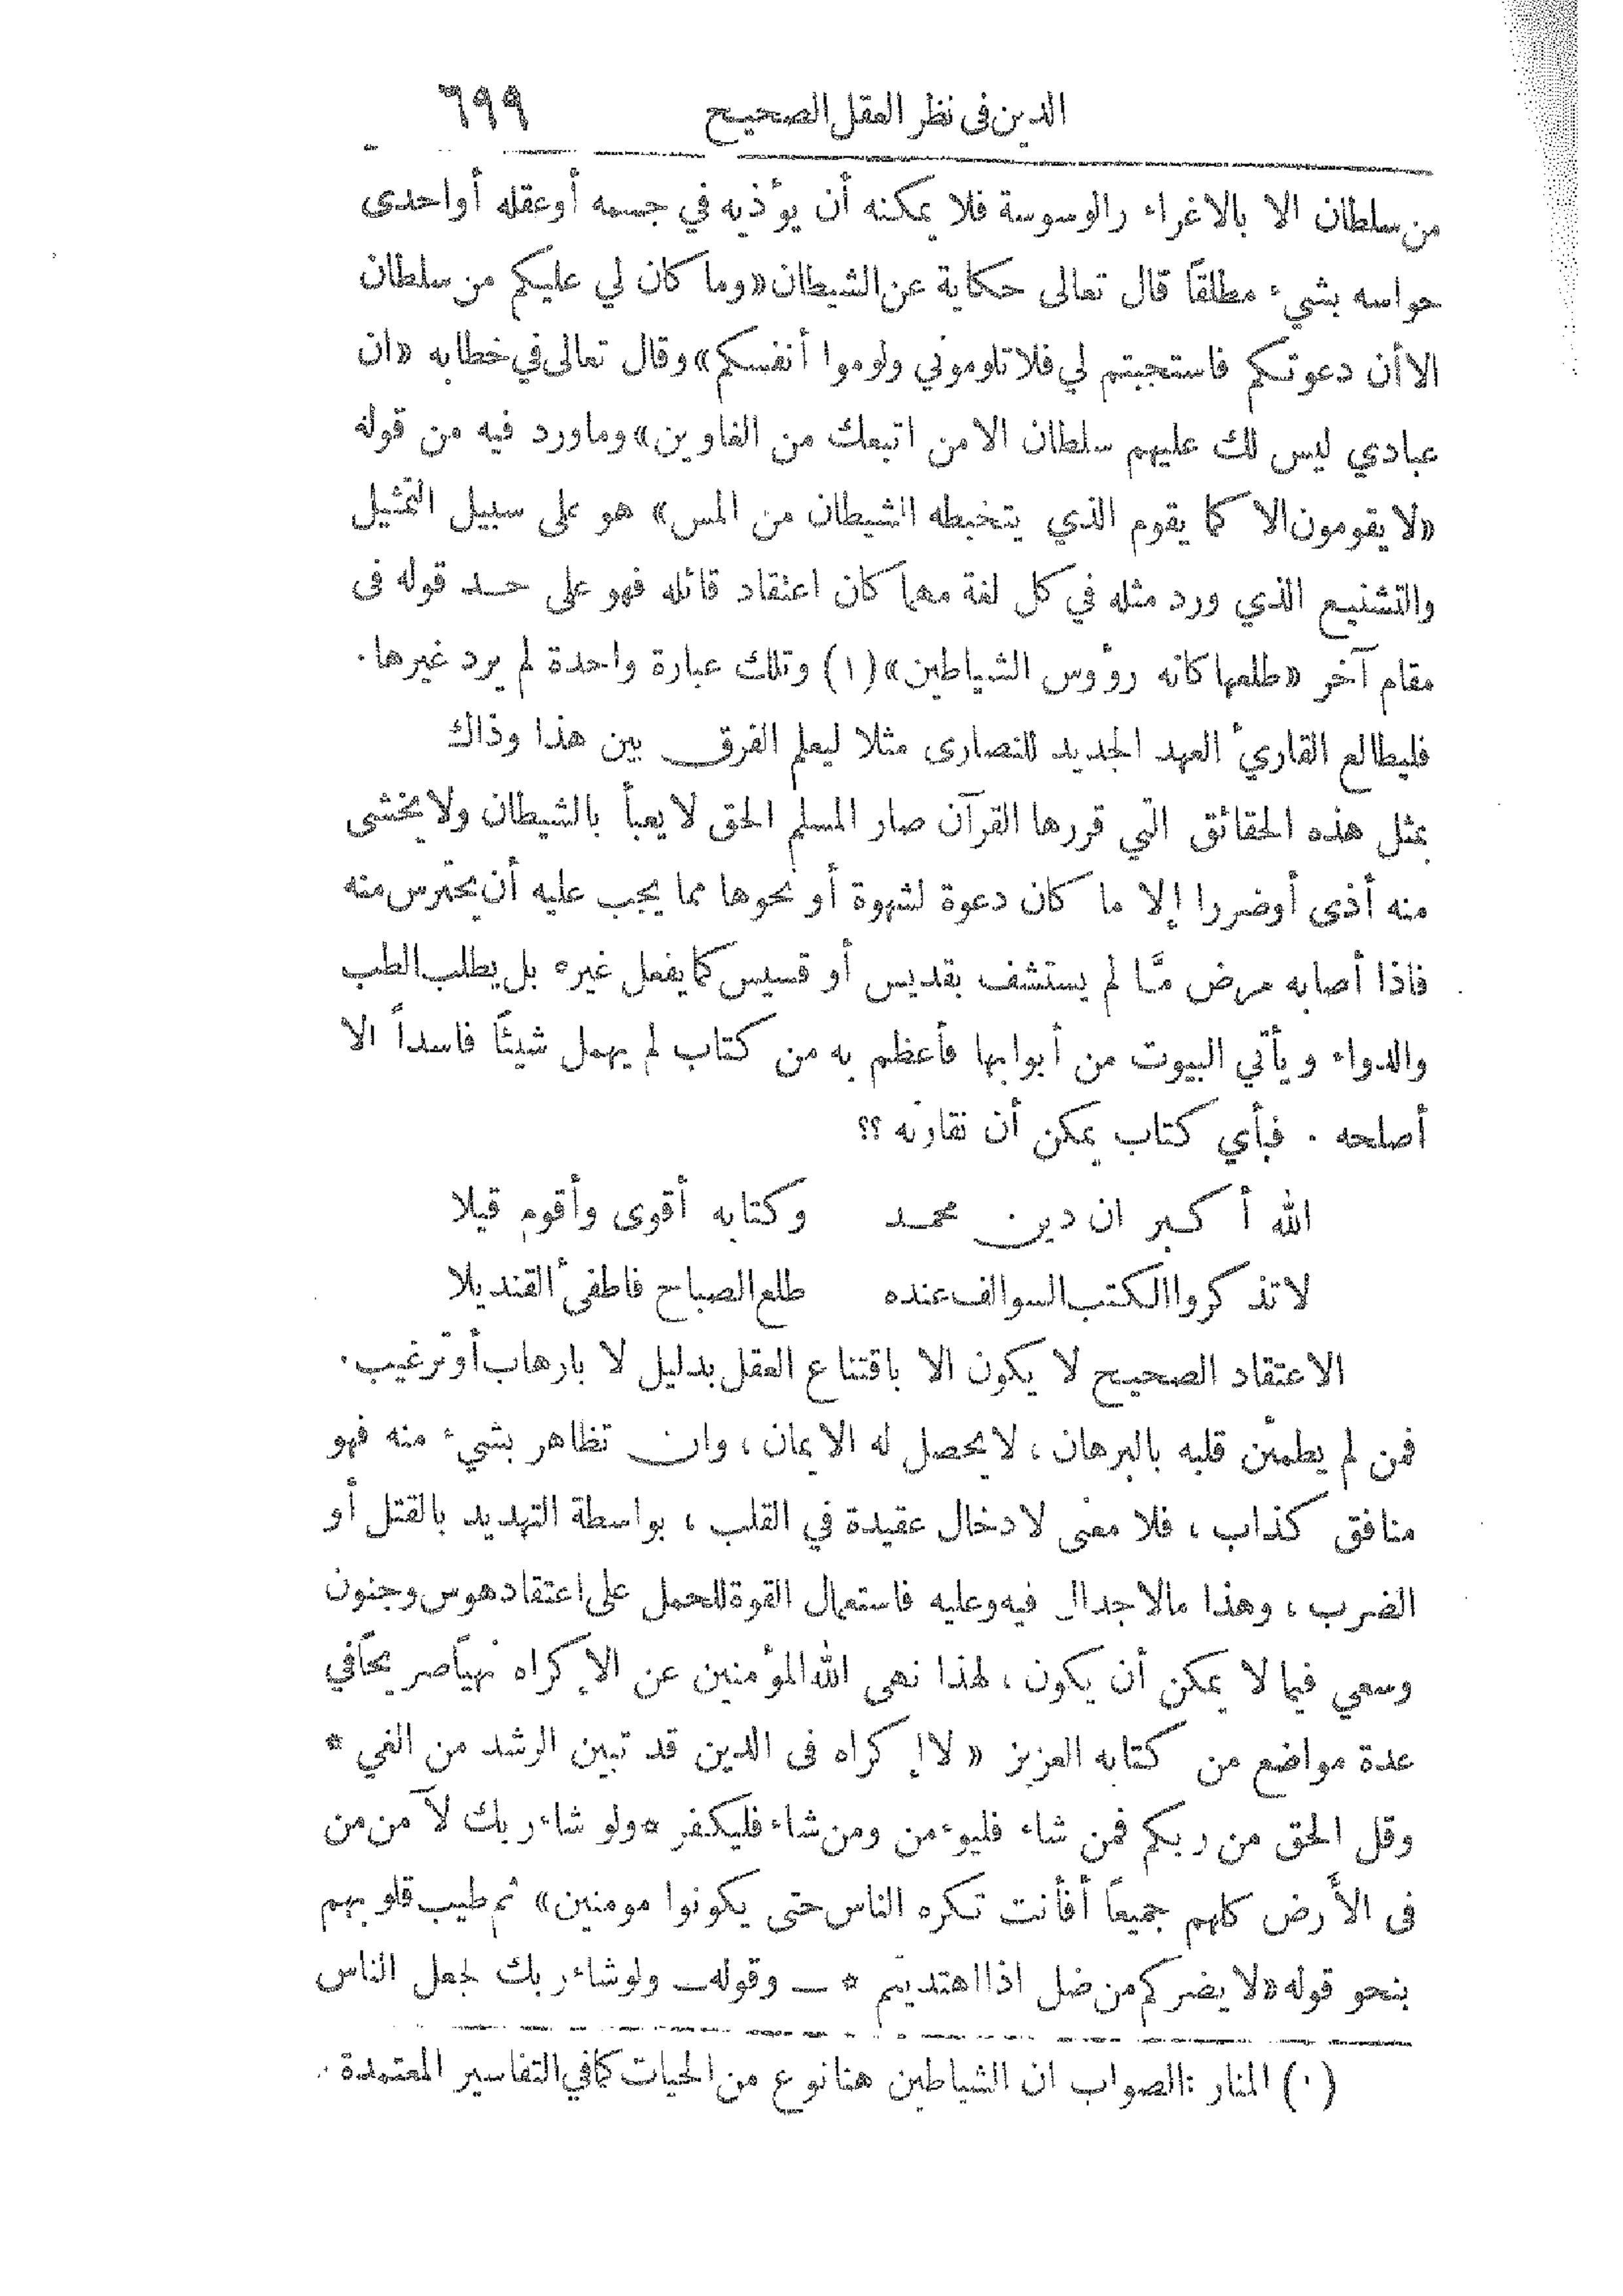 الدين فى نظر العقل الصحيح ٦٩٩
من سلطان الا بالاغراء والوسوسة فلا يمكنه أن يؤذيه في جسمه أو عقله أو احدى
حواسه بشيء مطلقاً قال تعالى حكاية عن الشيطان «وما كان لي عليكم من سلطان
الا أن دعوتكم فاستجبتم لي فلا تلوموني ولوموا أنفسكم» وقال تعالى في خطابه «ان
عبادي ليس لك عليهم سلطان الا من اتبعك من الغاوين» وما ورد فيه من قوله
«لا يقومون الا كما يقوم الذي يتخبطه الشيطان من المس» هو على سبيل التمثيل
والتشنيع الذي ورد مثله في كل لغة مهما كان اعتقاد قائله فهو على حد قوله فى
مقام آخر «طلعها كانه رؤوس الشياطين» (١) وتلك عبارة واحدة لم يرد غيرها.
فليطالع القاريُ العهد الجديد للنصارى مثلا ليعلم الفرق بين هذا وذاك
بمثل هذه الحقائق التي قررها القرآن صار المسلم الحق لا يعبأ بالشيطان ولا يخشى
منه أذى أو ضررا إلا ما كان دعوة لشهوة أو نحوها مما يجب عليه أن يحترس منه
فاذا أصابه مرض مَّا لم يستشف بقديس أو قسيس كما يفعل غيره بل يطلب الطب
والدواء ويأتي البيوت من أبوابها فأعظم به من كتاب لم يهمل شيئاً فاسداً الا
أصلحه . فبأي كتاب يمكن أن نقارنه ؟؟
الله أكبر ان دين محمد وكتابه أقوى وأقوم قيلا
لا تذكروا الكتب السوالف عنده طلع الصباح فاطفئ القنديلا
الاعتقاد الصحيح لا يكون الا باقتناع العقل بدليل لا بارهاب أو ترغيب.
فمن لم يطمئن قلبه بالبرهان ، لا يحصل له الايمان ، وان تظاهر بشيء منه فهو
منافق كذاب ، فلا معنى لادخال عقيدة في القلب ، بواسطة التهديد بالقتل أو
الضرب ، وهذا مالا جدال فيه وعليه فاستعمال القوة للحمل على اعتقاد هوس وجنون
وسعي فيما لا يمكن أن يكون ، لهذا نهى الله المؤمنين عن الإكراه نهياً صريحاً في
عدة مواضع من كتابه العزيز « لا إكراه فى الدين قد تبين الرشد من الغي *
وقل الحق من ربكم فمن شاء فليوءمن ومن شاء فليكفر * ولو شاء ربك لآمن من
فى الأرض كلهم جميعاً أفأنت تكره الناس حتى يكونوا مومنين» ثم طيب قلوبهم
بنحو قوله «لا يضركم من ضل اذا اهتديتم * ــ وقوله ــ ولو شاء ربك لجعل الناس
(١) المنار : الصواب ان الشياطين هنا نوع من الحيات كما في التفاسير المعتمدة .